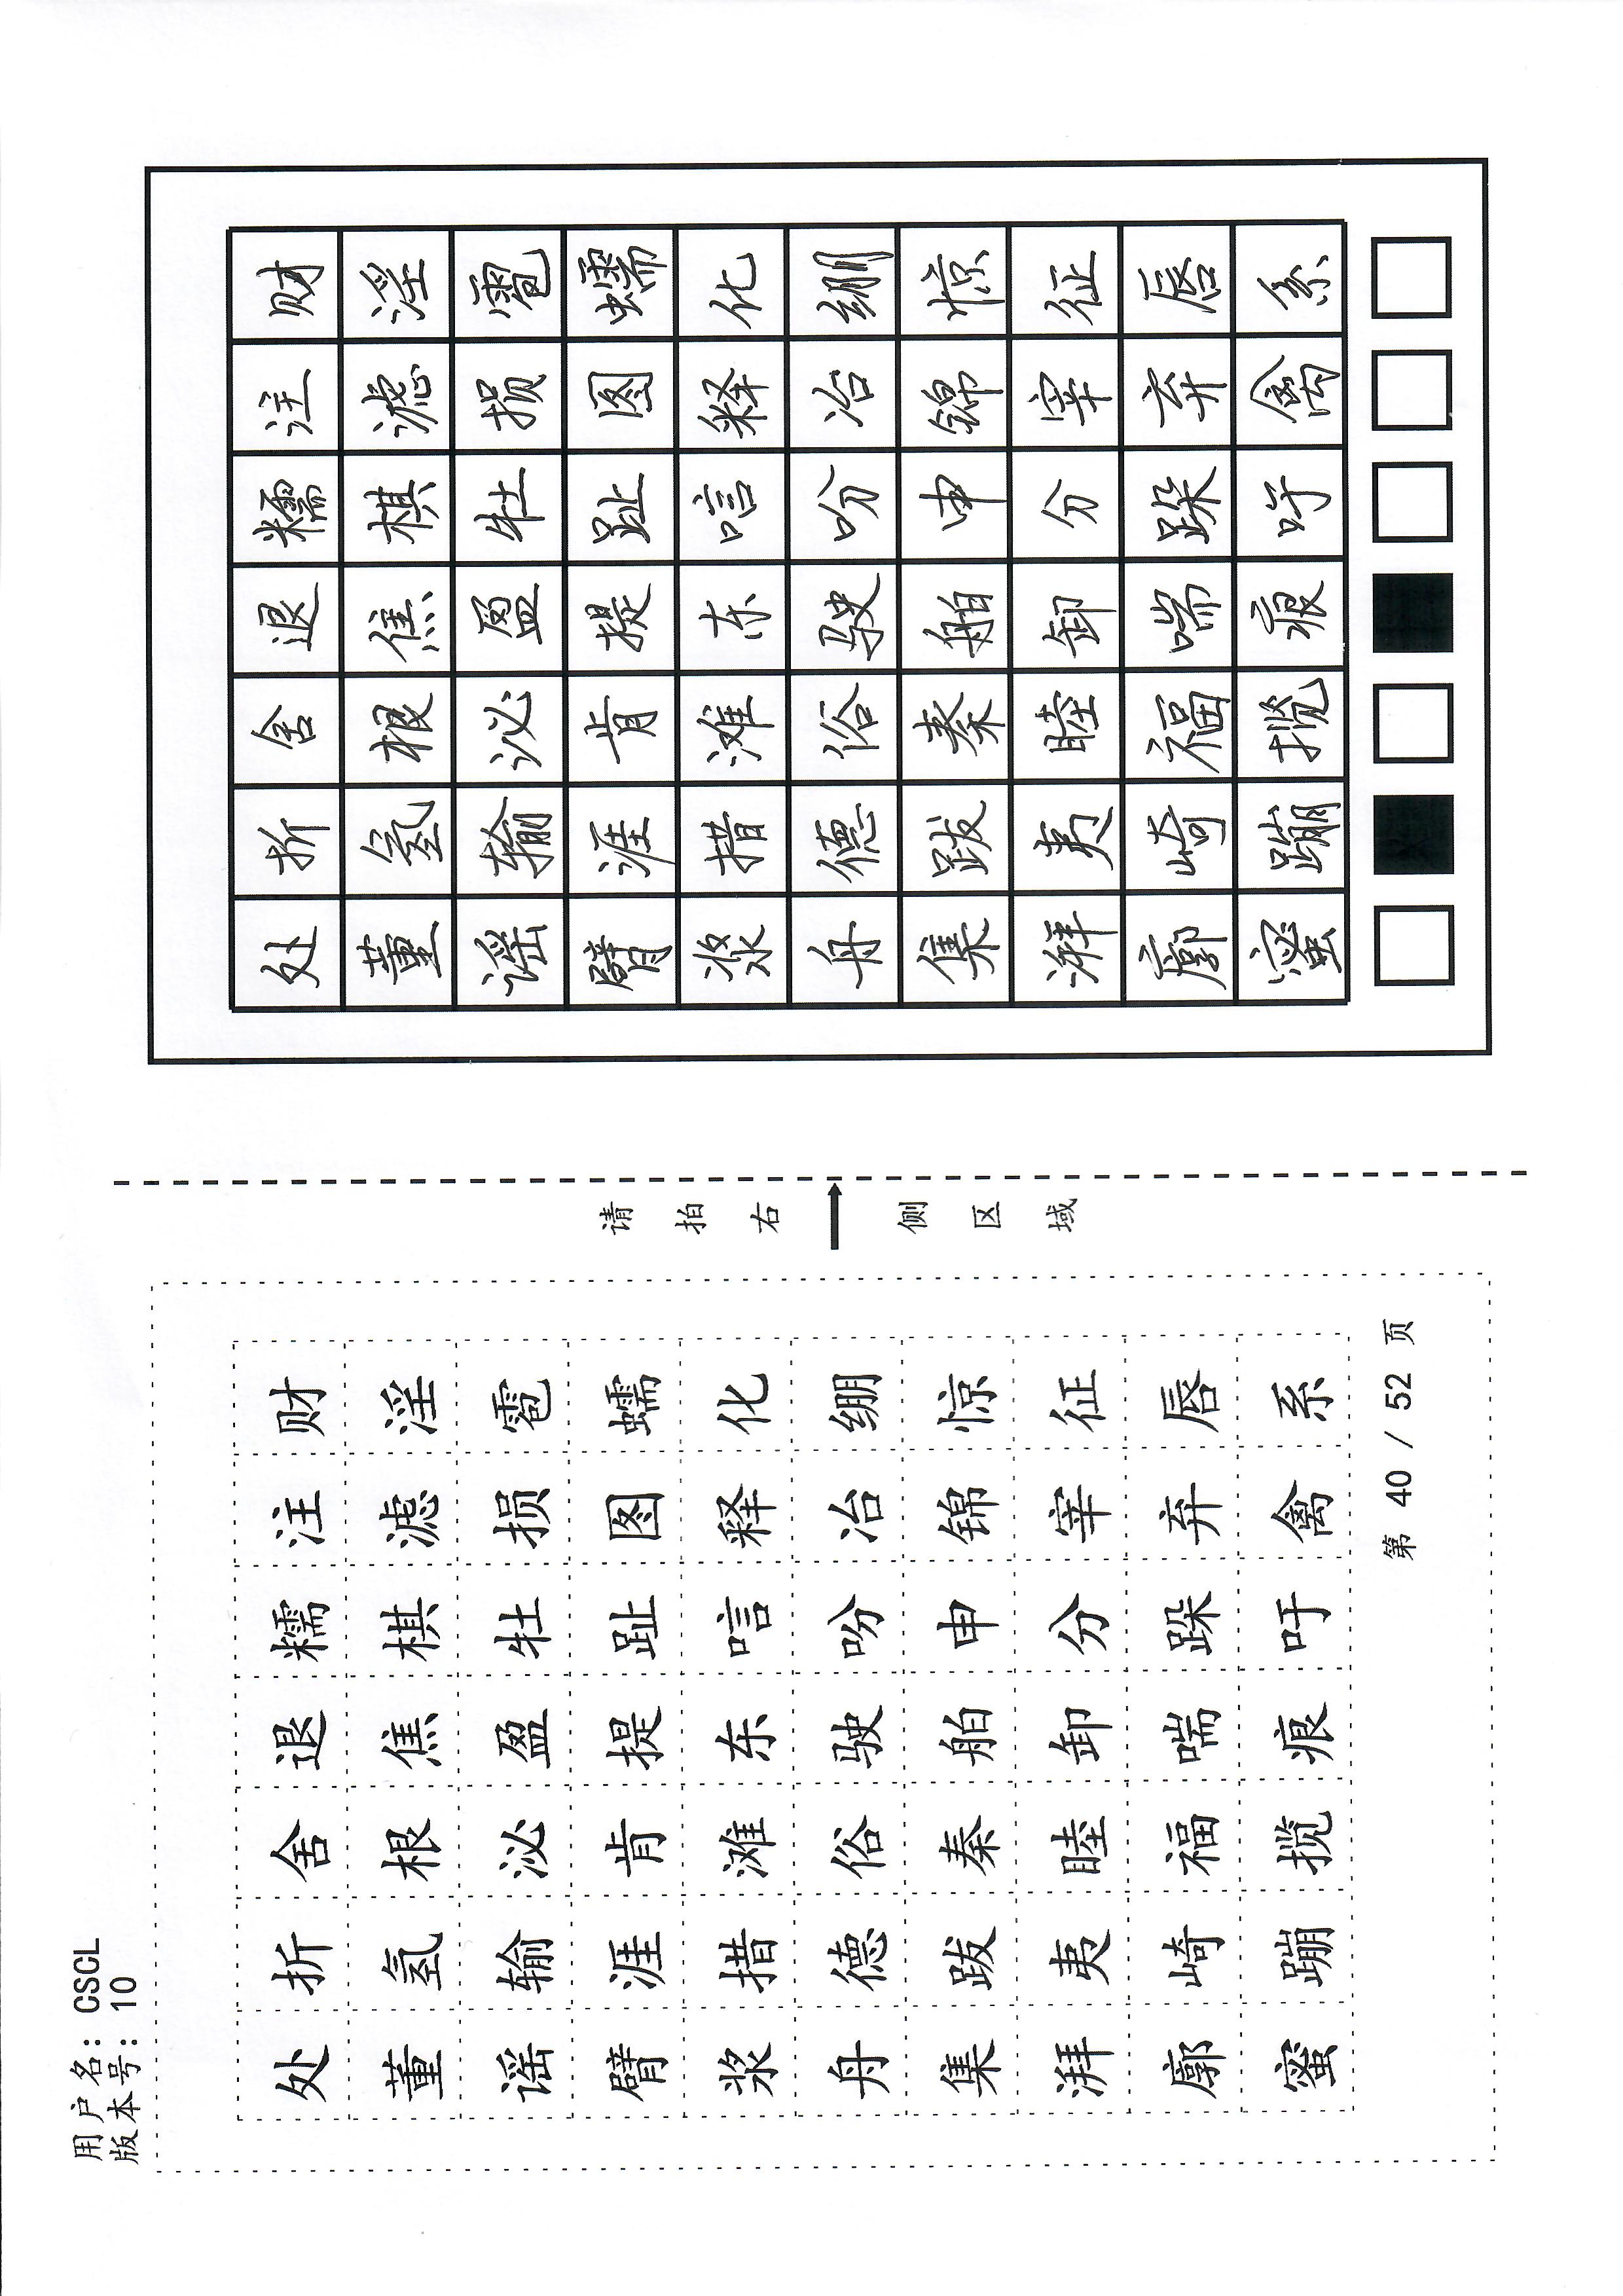 用户名: CSCL
版本号: 10
处折舍退糯注财
董氢根焦棋滤淫
谣输泌盈牡损雹
臂涯肯提趾图蠕
浆措滩东唁释化
舟德俗驶吩冶绷
集跋秦舶申锦惊
湃夷睦卸分宰征
廓崎福喘跺弃唇
蜜蹦揽痕吁禽系
第 40 / 52 页
请拍右
侧区域
处折舍退糯注财
董氢根焦棋滤淫
谣输泌盈牡损雹
臂涯肯提趾图蠕
浆措滩东唁释化
舟德俗驶吩冶绷
集跋秦舶申锦惊
湃夷睦卸分宰征
廓崎福喘跺弃唇
蜜蹦揽痕吁禽系